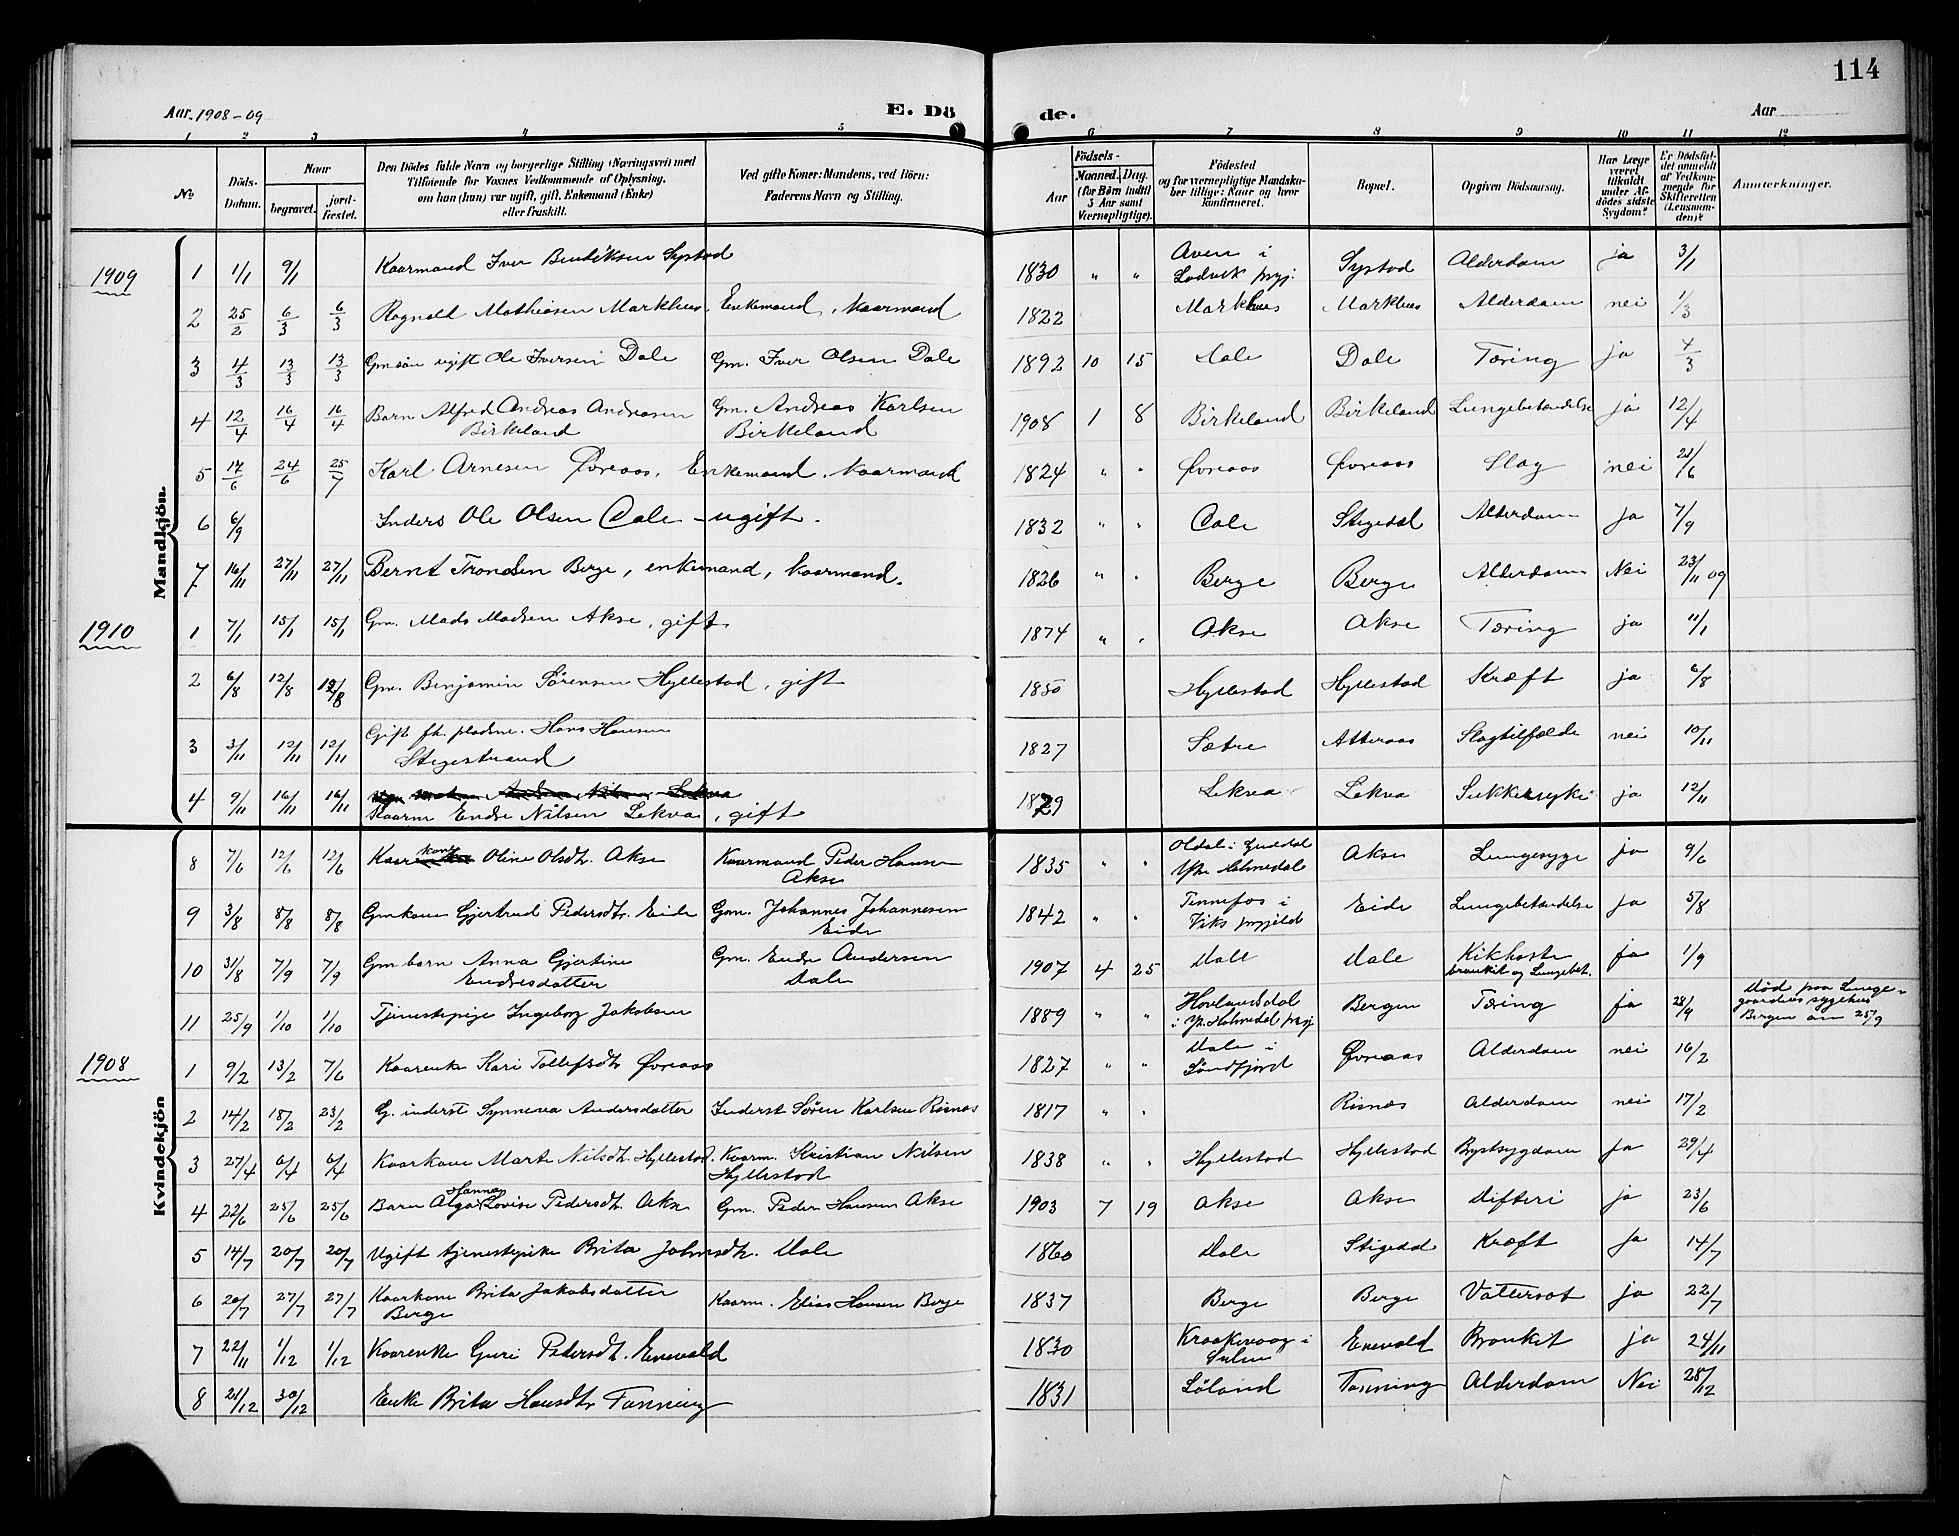 114
Aar 1908-09 E. Dö de. Aar
1 2 3 4 5 6 7 8 9 10 11 12
No. Döds-Datum. Naar begravet. jord-fæstet. Den Dödes fulde Navn og borgerlige Stilling (Næringsvei) med Tilföiende for Voxnes Vedkommende af Oplysning, om han (hun) var ugift, gift, Enkemand (Enke) eller fraskilt. Ved gifte Koner: Mandens, ved Börn: Faderens Navn og Stilling. Födsels- Aar Maaned. Dag. (for Börn indtil 5 Aar samt Værnepligtige). Födested og for værnepligtige Mandskaber tillige: Naar og hvor konfirmeret. Bopæl. Opgiven Dödsaarsag. Har Læge været tilkaldt under Afdödes sidste Sygdom? Er Dödsfaldet anmeldt af Vedkommende for Skifteretten (Lensmanden)? Anmærkninger.
Mandkjön.
1909 1 1/1 9/1 Kaarmand Iver Bendiksen Systad 1830 " " Aven i Systad Alderdom ja 3/1
Ladvik prgj:
2 25/2 6/3 6/3 Rognald Mathiasen Markhus, Enkemand, Kaarmand 1822 Markhus Markhus Alderdom nei 1/3
3 4/3 13/3 13/3 Gmsön ugift Ole Iversen Dale Gm. Iver Olsen Dale 1892 10 15 Dale Dale Tæring ja 4/3
4 12/4 16/4 16/4 Barn Alfred Andreas Andreasen Gm. Andreas Karlsen 1908 1 8 Birkeland Birkeland Lungebetændelse ja 12/4
Birkeland Birkeland
5 17/6 24/6 25/7 Karl Arnesen Øvreaas, Enkemand, Kaarmand 1824 " " Øvreaas Øvreaas Slag nei 21/6
6 6/9 Inders Ole Olsen Dale - ugift. 1832 " " Dale Stegedal Alderdom ja 7/9
7 16/11 27/11 27/11 Bernt Trondsen Berge, enkemand, kaarmand. 1826 " " Berge Berge Alderdom Nei 23/11 09
1910 1 7/1 15/1 15/1 Gm. Mads Madsen Akse, gift 1874 " " Akse Akse Tæring ja 11/1
2 6/8 12/8 12/8 Gm. Benjamin Sörensen Hyllestad, gift 1850 Hyllestad Hyllestad Kræft ja 6/8
3 3/11 12/11 12/11 Gift fh. pladsm. Hans Hansen 1827 Sætre Atteraas Slagtilfælde nei 10/11
Stegestrand
4 9/11 16/11 16/11 Kaarm Endre Nilsen Lekva, gift 1829 Lekva Lekva Sukkersyke ja 12/11
Kvindekjön
8 7/6 12/6 12/6 Kaarkone Oline Olsdt. Akse Kaarmand Peder Hansen 1835 " " Oldal i Guldal Akse Lungesyge ja 9/6
Akse Ytre Holmedal
9 3/8 8/8 8/8 Gmkone Gjertrud Pedersdtr. Eide Gm. Johannes Johannesen 1842 " " Tennefos i Eide Lungebetændelse ja 5/8
Eide Viks prgjeld
10 31/8 7/9 7/9 Gm barn Anna Gjertine Gm. Endre Andersen 1907 4 25 Dale Dale Kikhoste ja 1/9
Endresdatter Dale bronkit og Lungebet.
11 25/9 1/10 1/10 Tjenestepige Ingeborg Jakobsen 1889 " " Hovlandsdal Bergen Tæring ja 28/9 Död paa Lunge-
i Y. Holmedal prgj gaardens sygehus
Bergen den 25/9
1908 1 9/2 13/2 7/6 Kaarenke Kari Tollefsdt. Øvreaas 1827 " " Dale i Øvreaas Alderdom nei 16/2
Söndfjord
2 14/2 18/2 23/2 G. inderst Synneva Andersdatter Inderst Sören Karlsen Risnes 1817 " " Risnes Alderdom nei 17/2
3 27/4 6/4 6/4 Kaarkone Marte Nilsdt. Hyllestad. Kaarm. Kristian Nilsen 1838 " " Hyllestad Hyllestad Brystsygdom ja 29/4
Hyllestad
4 22/6 25/6 25/6 Barn Alga Hanna Lovise Pedersdt. Akse Gm. Peder Hansen Akse 1903 7 19 Akse Akse Difteri ja 23/6
5 14/7 20/7 20/7 Ugift tjenestepike Brita Johnsdt. Dale 1860 Dale Stigedal Kræft ja 14/7
6 20/7 27/7 27/7 Kaarkone Brita Jakobsdatter Kaarm. Elias Hansen Berge 1837 Berge Berge Vattersot ja 22/7
Berge
7 22/11 1/12 1/12 Kaarenke Guri Pedersdt. Enevald 1830 Kraakevaag i Enevald Bronkit ja 24/11
Sulen
8 21/12 30/12 Enke Brita Hansdtr Tonning 1831 Löland Tonning Alderdom Nei 28/12